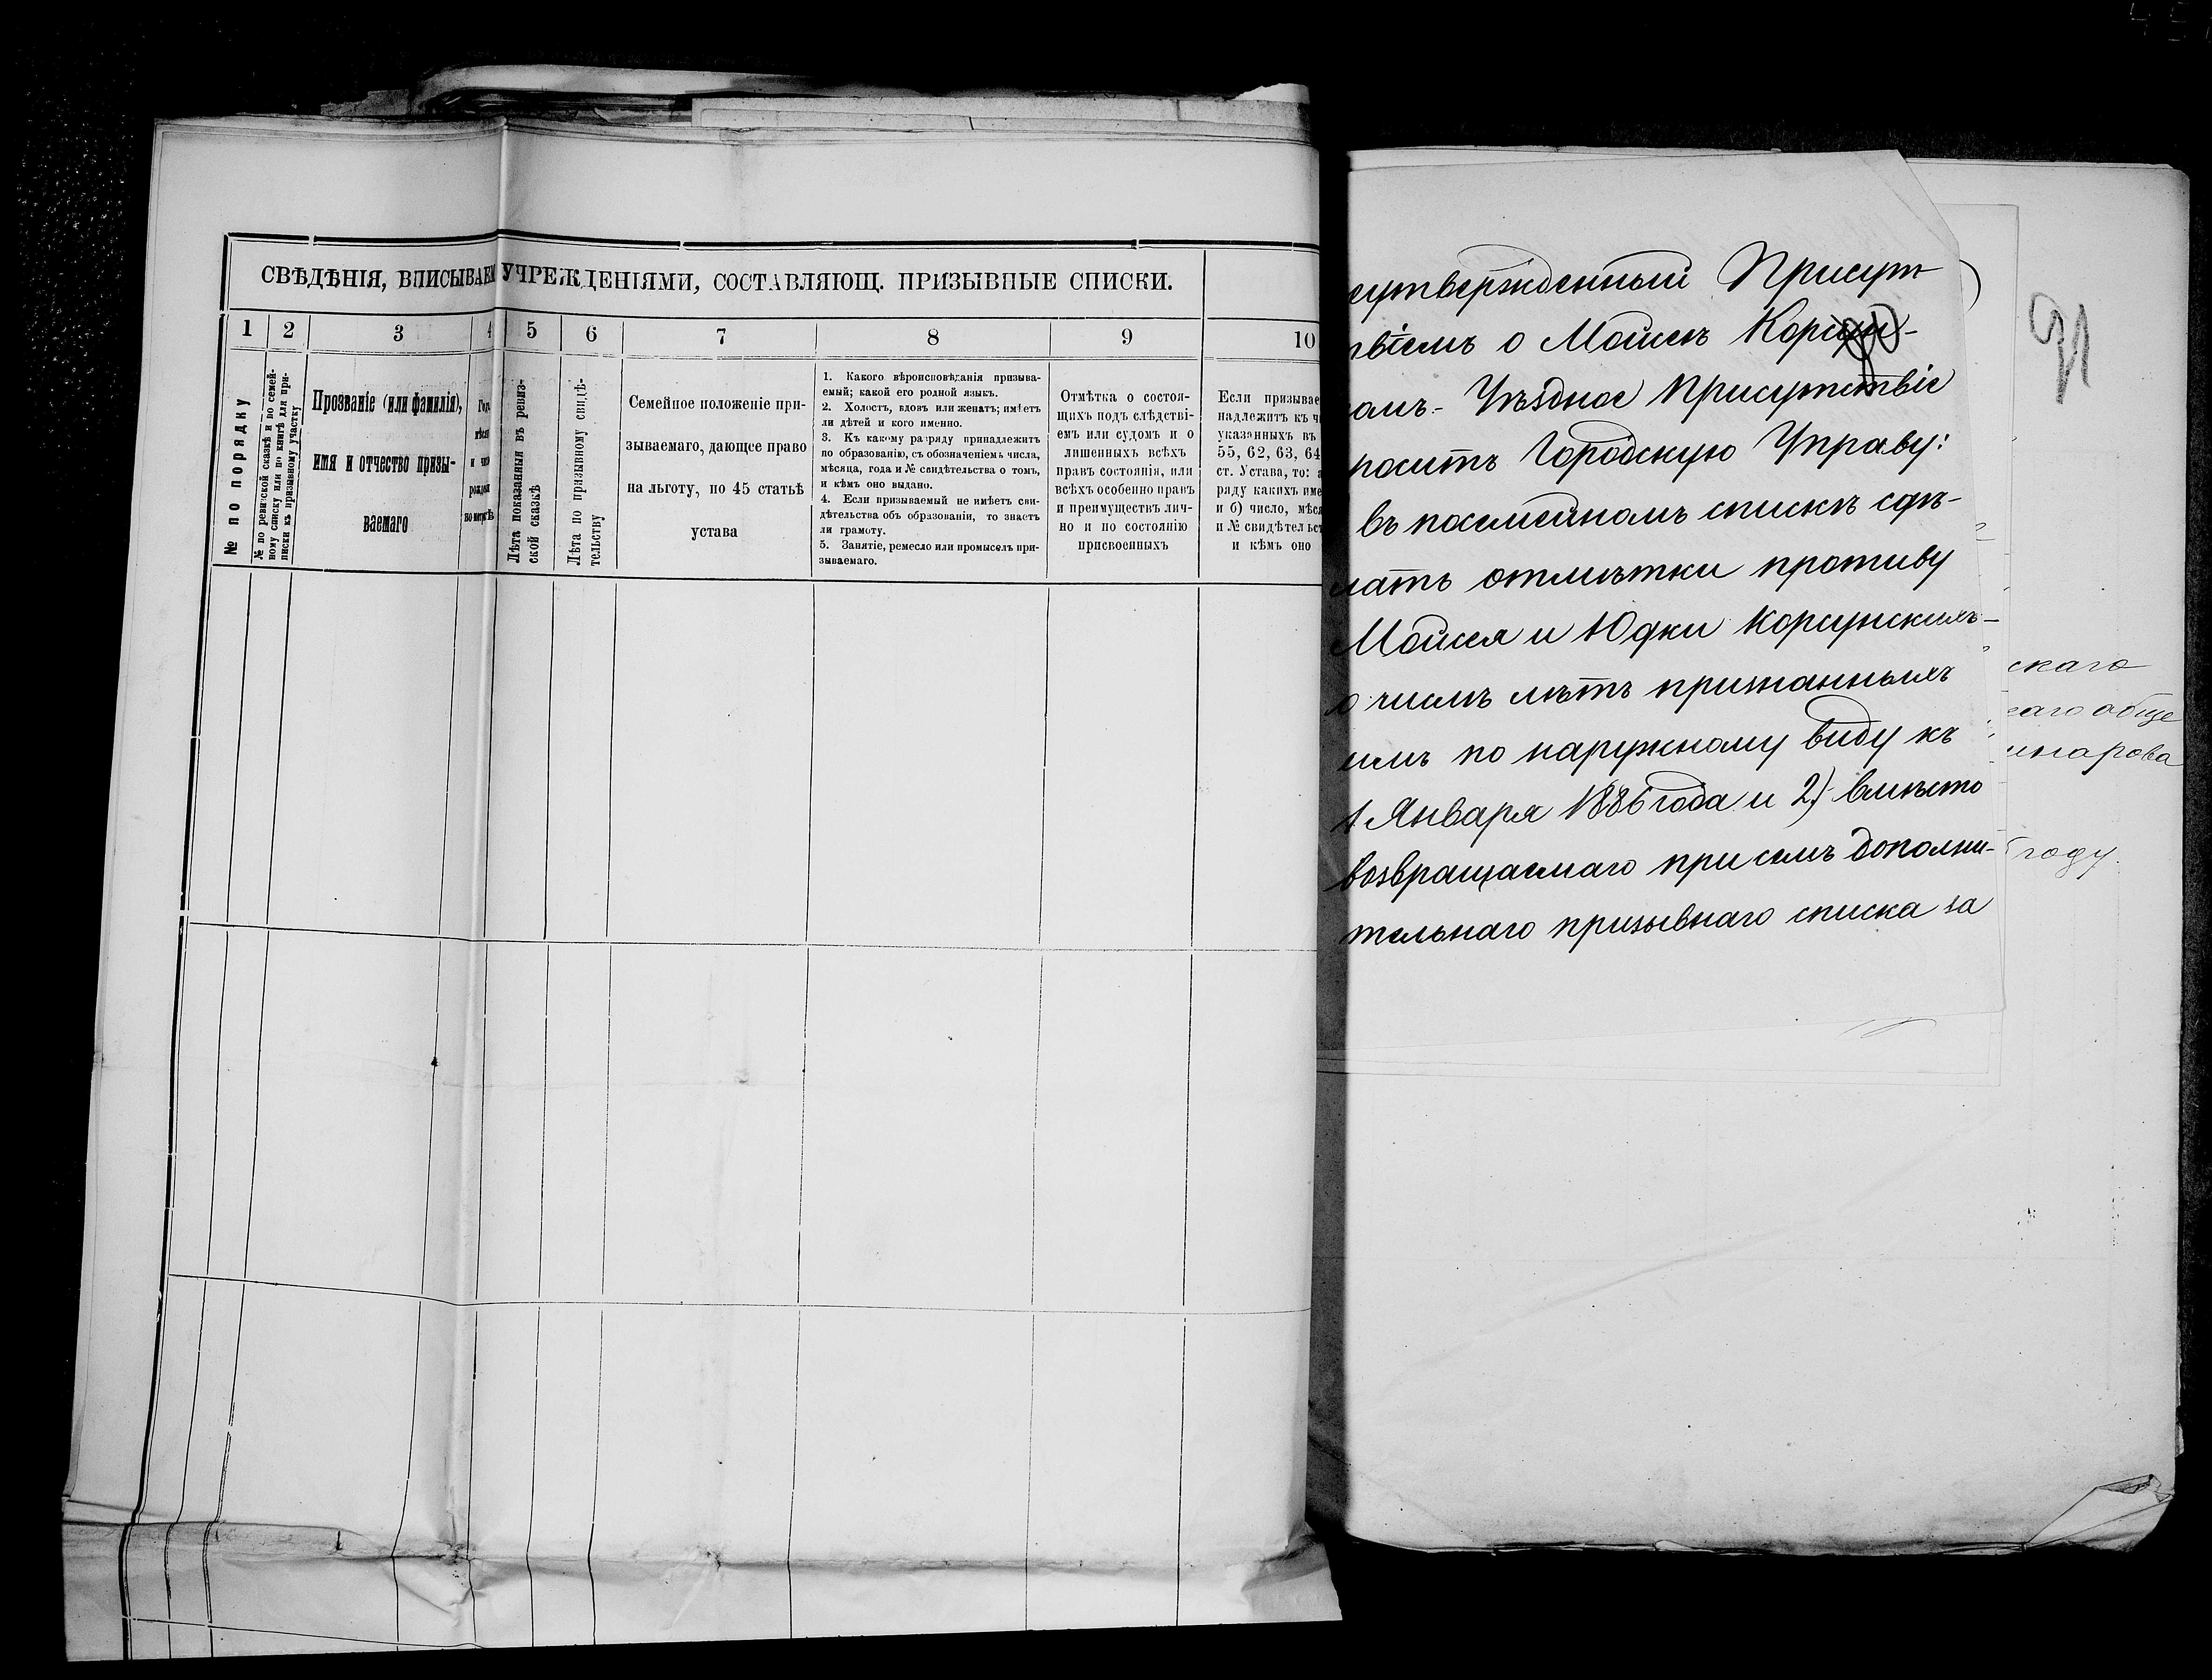 СВѢДѢНІЯ, ВПИСЫВАЕМ УЧРЕЖДЕНІЯМИ, СОСТАВЛЯЮЩ. ПРИЗЫВНЫЕ СПИСКИ.
1 2 3 4 5 6 7 8 9 10
№ по порядку
№ по ревизской сказкѣ и по семей-
ному списку или по книгѣ для при-
писки къ призывному участку
Прозваніе (или фамилія),
имя и отчество призы-
ваемаго
Лѣта показанныя въ ревиз-
ской сказкѣ
Лѣта по призывному свидѣ-
тельству
Семейное положеніе при-
зываемаго, дающее право
на льготу, по 45 статьѣ
устава
1. Какого вѣроисповѣданія призыва-
емый; какой его родной языкъ.
2. Холостъ, вдовъ или женатъ; имѣетъ
ли дѣтей и кого именно.
3. Къ какому разряду принадлежитъ
по образованію, съ обозначеніемъ числа,
мѣсяца, года и № свидѣтельства о томъ,
и кѣмъ оно выдано.
4. Если призываемый не имѣетъ сви-
дѣтельства объ образованіи, то знаетъ
ли грамоту.
5. Занятіе, ремесло или промыселъ при-
зываемаго.
Отмѣтка о состоя-
щихъ подъ слѣдстві-
емъ или судомъ и о
лишенныхъ всѣхъ
правъ состоянія, или
всѣхъ особенно правъ
и преимуществъ лич-
но и по состоянію
присвоенныхъ
Если призывае
надлежитъ къ ч
указанныхъ въ
55, 62, 63, 64
ст. Устава, то: а
ряду какихъ име
и б) число, мѣся
и № свидѣтельст
и кѣмъ оно
сутвержденный Присут
твіемъ о Мойсеѣ Корсун-
омъ- Уѣздное Присутствіе
носитъ Городскую Управу:
въ посемейномъ спискѣ сдѣ-
лать отмѣтки противу
Мойсея и Юдки Корсунскихъ-
о числѣ лѣтъ признанныхъ
имъ по наружному виду къ
1 Января 1886 года и 2) вмѣсто
возвращаемаго при семъ дополни-
тельнаго призывнаго списка за
скаго
аго обще
году.
91